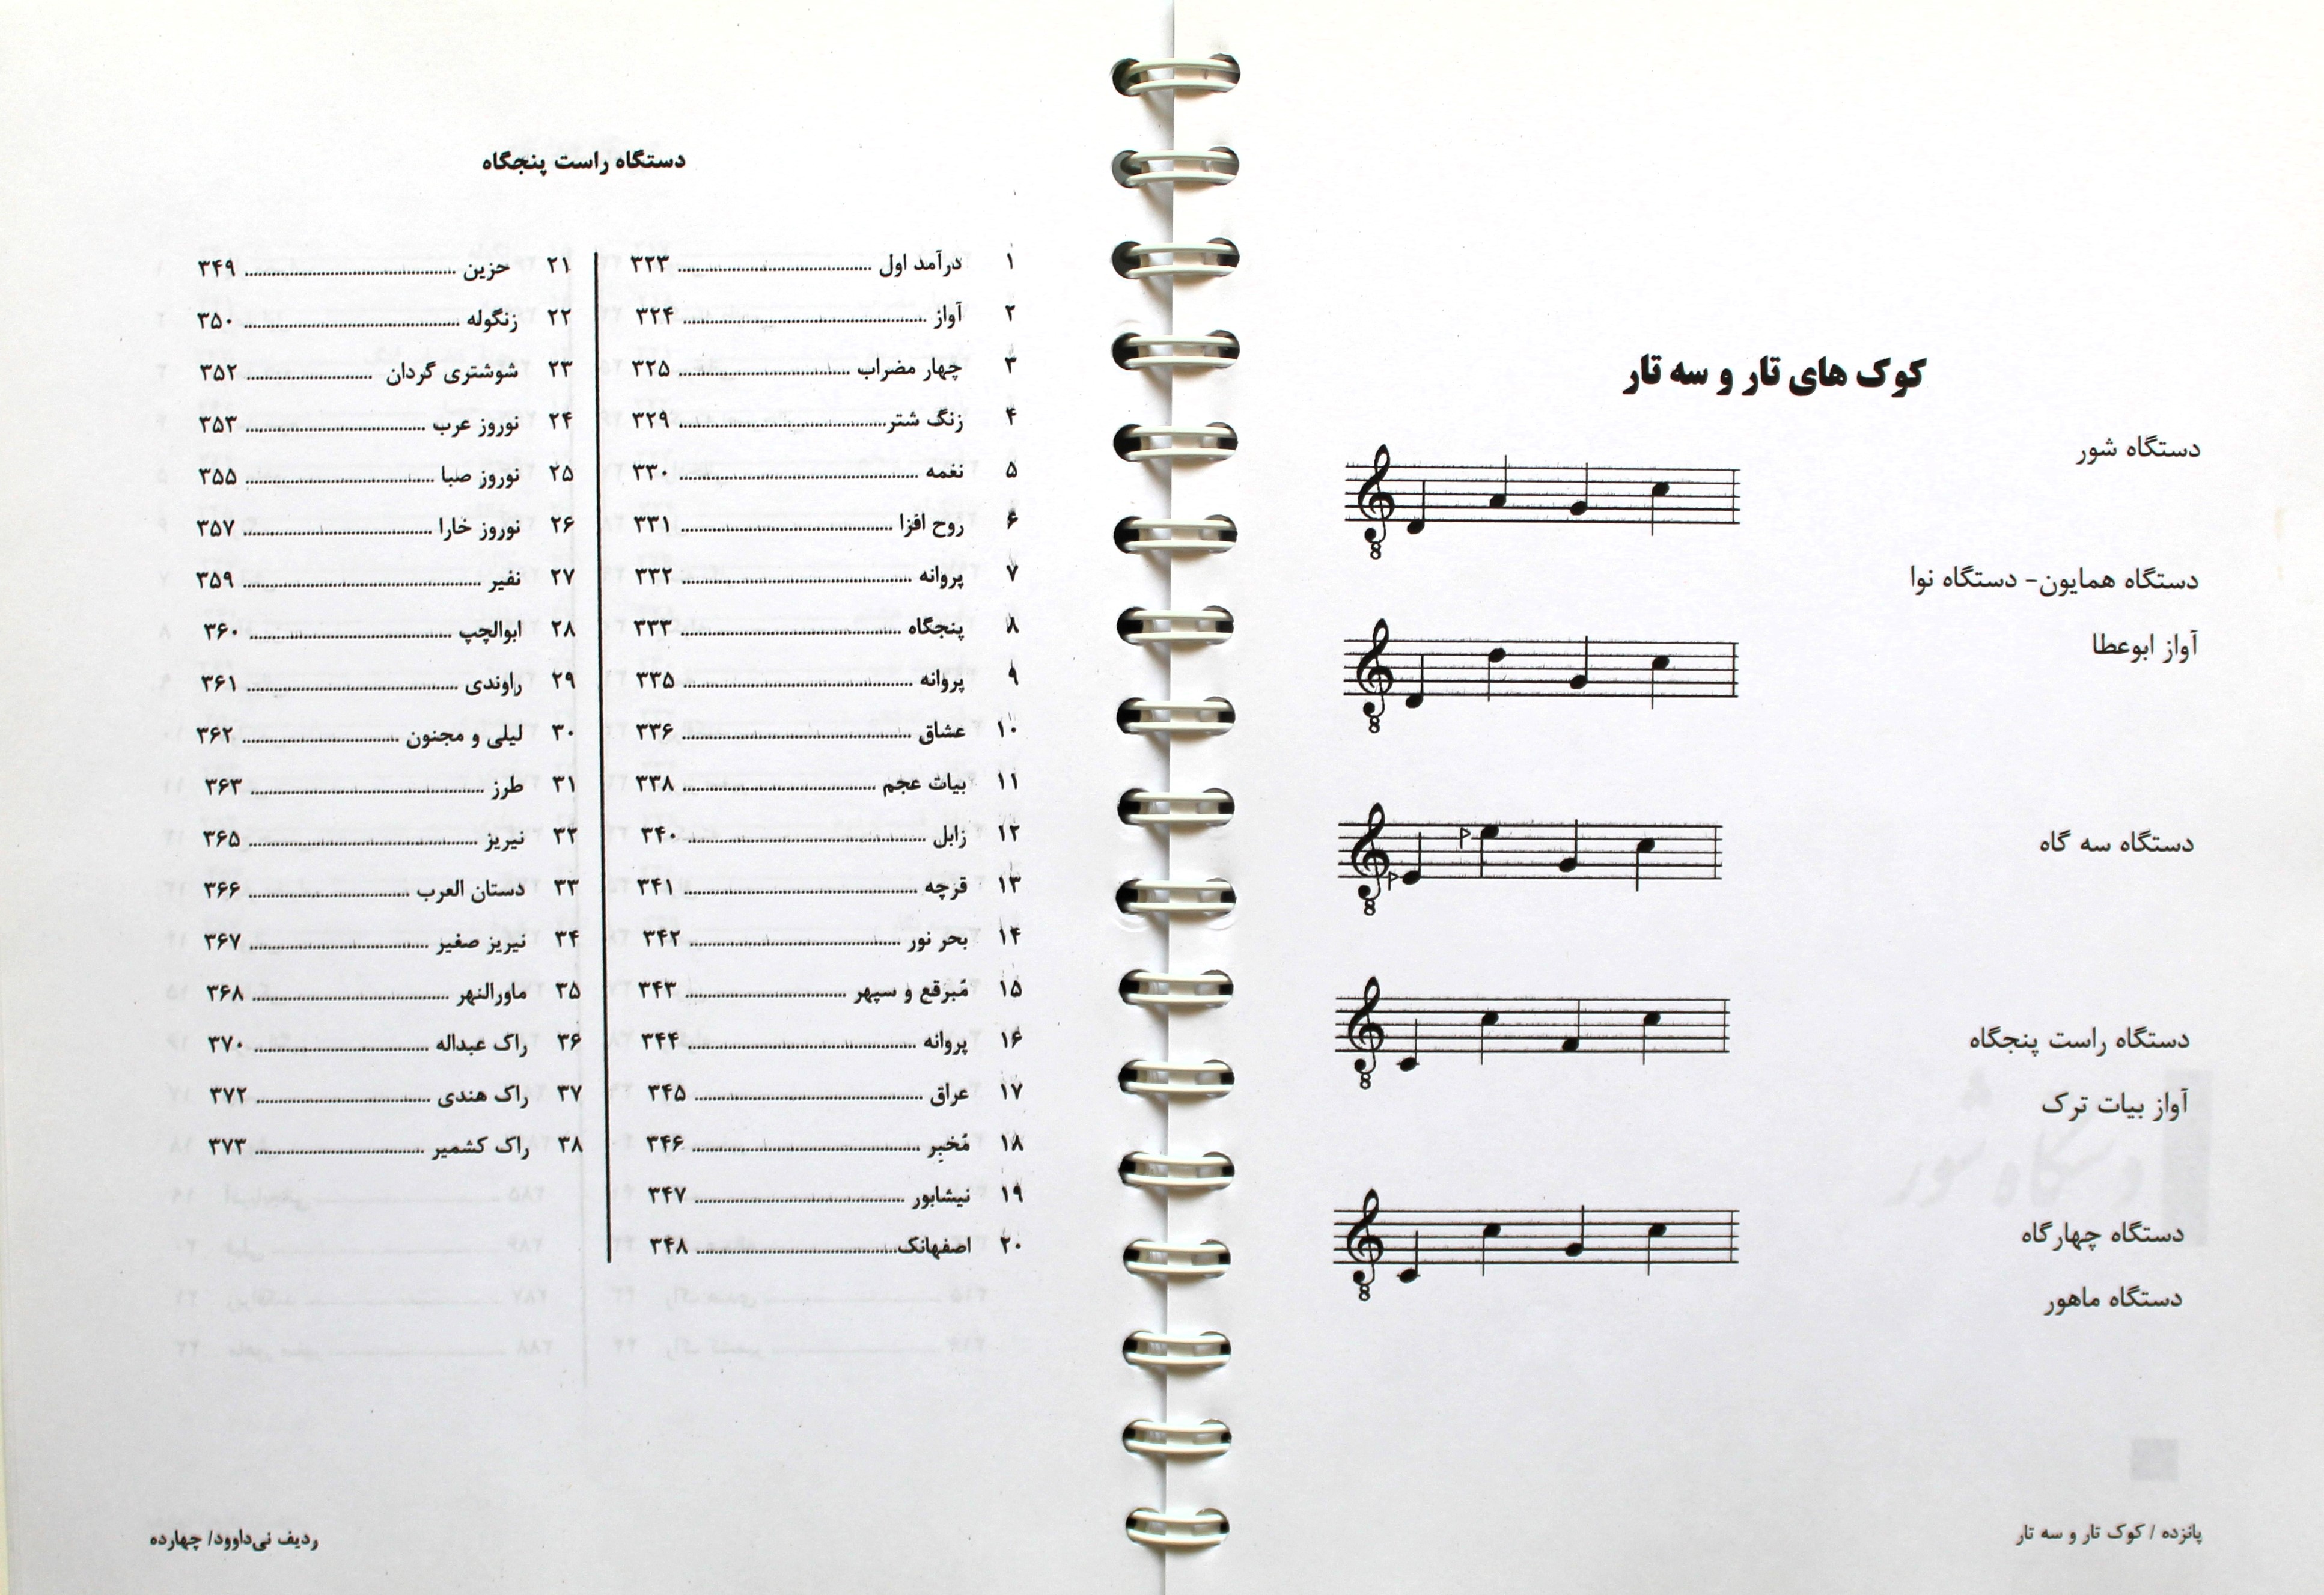 دستگاه راست پنجگاه
۱ درآمد اول ........ ۳۲۳
۲ آواز ........ ۳۲۴
۳ چهار مضراب ........ ۳۲۵
۴ زنگ شتر ........ ۳۲۹
۵ نغمه ........ ۳۳۰
۶ روح افزا ........ ۳۳۱
۷ پروانه ........ ۳۳۲
۸ پنجگاه ........ ۳۳۳
۹ پروانه ........ ۳۳۵
۱۰ عشاق ........ ۳۳۶
۱۱ بیات عجم ........ ۳۳۸
۱۲ زابل ........ ۳۴۰
۱۳ قرچه ........ ۳۴۱
۱۴ بحر نور ........ ۳۴۲
۱۵ مُبرقع و سپهر ........ ۳۴۳
۱۶ پروانه ........ ۳۴۴
۱۷ عراق ........ ۳۴۵
۱۸ مُخبر ........ ۳۴۶
۱۹ نیشابور ........ ۳۴۷
۲۰ اصفهانک ........ ۳۴۸
۲۱ حزین ........ ۳۴۹
۲۲ زنگوله ........ ۳۵۰
۲۳ شوشتری گردان ........ ۳۵۲
۲۴ نوروز عرب ........ ۳۵۳
۲۵ نوروز صبا ........ ۳۵۵
۲۶ نوروز خارا ........ ۳۵۷
۲۷ نفیر ........ ۳۵۹
۲۸ ابوالچپ ........ ۳۶۰
۲۹ راوندی ........ ۳۶۱
۳۰ لیلی و مجنون ........ ۳۶۲
۳۱ طرز ........ ۳۶۳
۳۲ نیریز ........ ۳۶۵
۳۳ دستان العرب ........ ۳۶۶
۳۴ نیریز صغیر ........ ۳۶۷
۳۵ ماورالنهر ........ ۳۶۸
۳۶ راک عبداله ........ ۳۷۰
۳۷ راک هندی ........ ۳۷۲
۳۸ راک کشمیر ........ ۳۷۳
ردیف نی‌داوود/ چهارده
کوک های تار و سه تار
دستگاه شور
دستگاه همایون- دستگاه نوا
آواز ابوعطا
دستگاه سه گاه
دستگاه راست پنجگاه
آواز بیات ترک
دستگاه چهارگاه
دستگاه ماهور
پانزده / کوک تار و سه تار